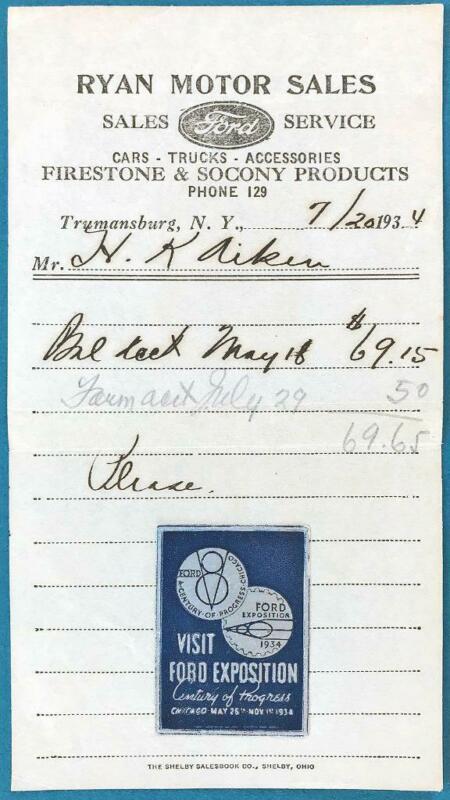 RYAN MOTOR SALES
SALES Ford SERVICE
CARS - TRUCKS - ACCESSORIES
FIRESTONE & SOCONY PRODUCTS
PHONE 129
Trumansburg, N. Y., 7/20 1934
Mr. H. K Aiken
Bal acct May 18 $69.15
Farm acct July 29 50
69.65
Please.
FORD
A·CENTURY·OF·PROGRESS·CHICAGO
FORD
EXPOSITION
1934
VISIT
FORD EXPOSITION
Century of Progress
CHICAGO·MAY 26TH-NOV 1ST 1934
THE SHELBY SALESBOOK CO., SHELBY, OHIO